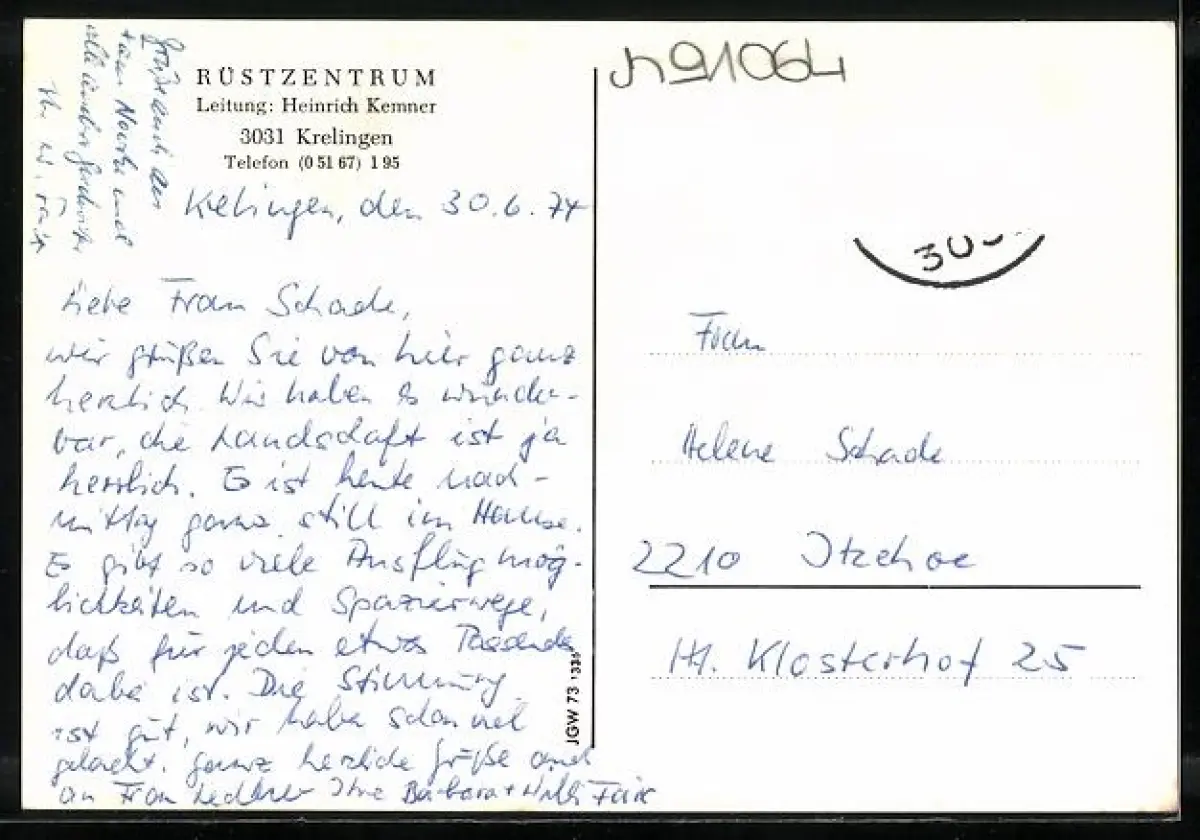 RÜSTZENTRUM
Leitung: Heinrich Kemner
3031 Krelingen
Telefon (0 51 67) 1 95
Krelingen, den 30.6.74
Liebe Frau Schade,
wir grüßen Sie von hier ganz
herzlich. Wir haben es wunder-
bar, die Landschaft ist ja
herrlich. Es ist heute nach-
mittag ganz still im Hause.
Es gibt so viele Ausflugmög-
lichkeiten und Spazierwege,
daß für jeden etwas Passendes
dabei ist. Die Stimmung
ist gut, wir haben schon viel
gelacht. Ganz herzliche Grüße auch
an Frau Ihre Barbara +
Grüße auch an
und
alle
Ihr
JGW 73 1335
h91064
30
Frau
Helene Schade
2210 Itzehoe
Kl. Klosterhof 25